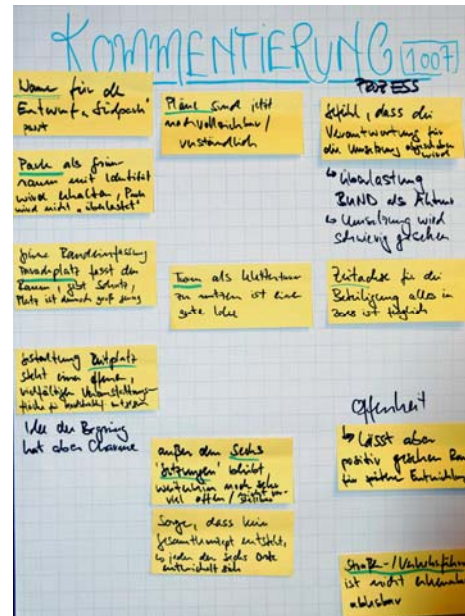 KOMMENTIERUNG 1007
Name für den
Entwurf "Südpark"
passt
Park als grün
raum mit Identität
wird erhalten, Park
wird nicht "überlastet"
grüne Randeinfassung
Paradeplatz fasst den
Raum, gibt Schutz,
Platz ist danach groß genug
Gestaltung Reitplatz
steht einer offenen,
vielfältigen Veranstaltungs-
fläche
Idee der Begrünung
hat aber Charme
Pläne sind jetzt
nachvollziehbar/
verständlich
Turm als Kletterturm
zu nutzen ist eine
gute Idee
außer den Sechs
"Setzungen" bleibt
weiterhin noch sehr
viel offen/
Sorge, dass kein
Gesamtkonzept entsteht,
jeder der sechs Orte
entwickelt sich
PROZESS
Gefühl, dass die
Verantwortung für
die Umsetzung abgeschoben
wird
Überlastung
BUND als Akteur
Umsetzung wird
schwierig gesehen
Zeitachse für die
Beteiligung alles in
ist
Offenheit
Lässt aber
positiv gesehen
für spätere Entwicklung
Straßen-/Verkehrsführung
ist nicht erkennbar
ablesbar